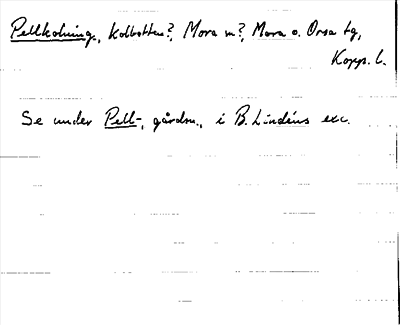 Pellkolning, Kolbotten?, Mora m?, Mora o. Orsa tg,
Kopp. l.
Se under Pell-, gårdsn., i B. Lindéns exc.